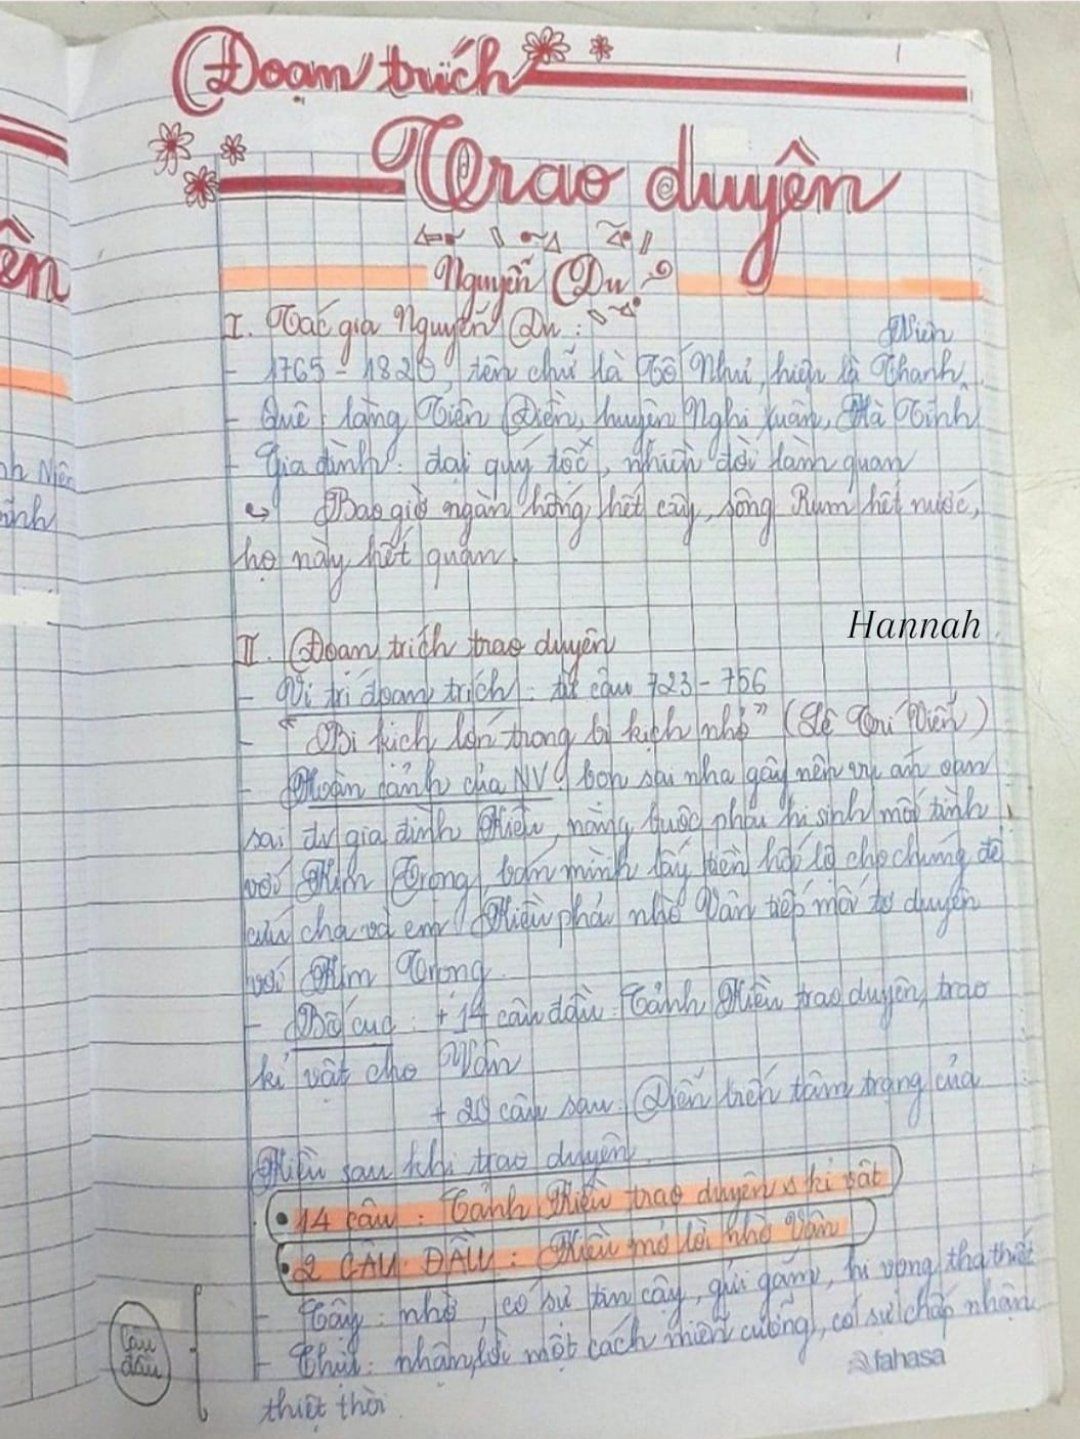 Đoạn trích
Trao duyên
Nguyễn Du
I. Tác giả Nguyễn Du:
- 1765 - 1820, tên chữ là Tố Như, hiệu là Thanh Hiên
- Quê: làng Tiên Điền, huyện Nghi Xuân, Hà Tĩnh
- Gia đình: đại quý tộc, nhiều đời làm quan
↪ Bao giờ ngàn hống hết cây, sông Rum hết nước,
họ này hết quan.
Hannah
II. Đoạn trích trao duyên
- Vị trí đoạn trích: từ câu 723 - 756
- "Bi kịch lớn trong bi kịch nhỏ" (Lê Trí Viễn)
- Hoàn cảnh của NV: bọn sai nha gây nên vụ án oan
sai đv gia đình Kiều, nàng buộc phải hi sinh mối tình
với Kim Trọng, bán mình lấy tiền hối lộ cho chúng để
cứu cha và em. Kiều phải nhờ Vân tiếp mối tơ duyên
với Kim Trọng.
- Bố cục: + 14 câu đầu: Cảnh Kiều trao duyên, trao
kỉ vật cho Vân
+ 20 câu sau: Diễn biến tâm trạng của
Kiều sau khi trao duyên.
• 14 câu: Cảnh Kiều trao duyên & kỉ vật
• 2 CÂU ĐẦU: Kiều mở lời nhờ Vân
- Cậy: nhờ, có sự tin cậy, gửi gắm, hi vọng tha thiết
Câu đầu
- Chịu: nhận lời một cách miễn cưỡng, có sự chấp nhận
thiệt thòi.
fahasa
ên
nh Niên
ĩnh